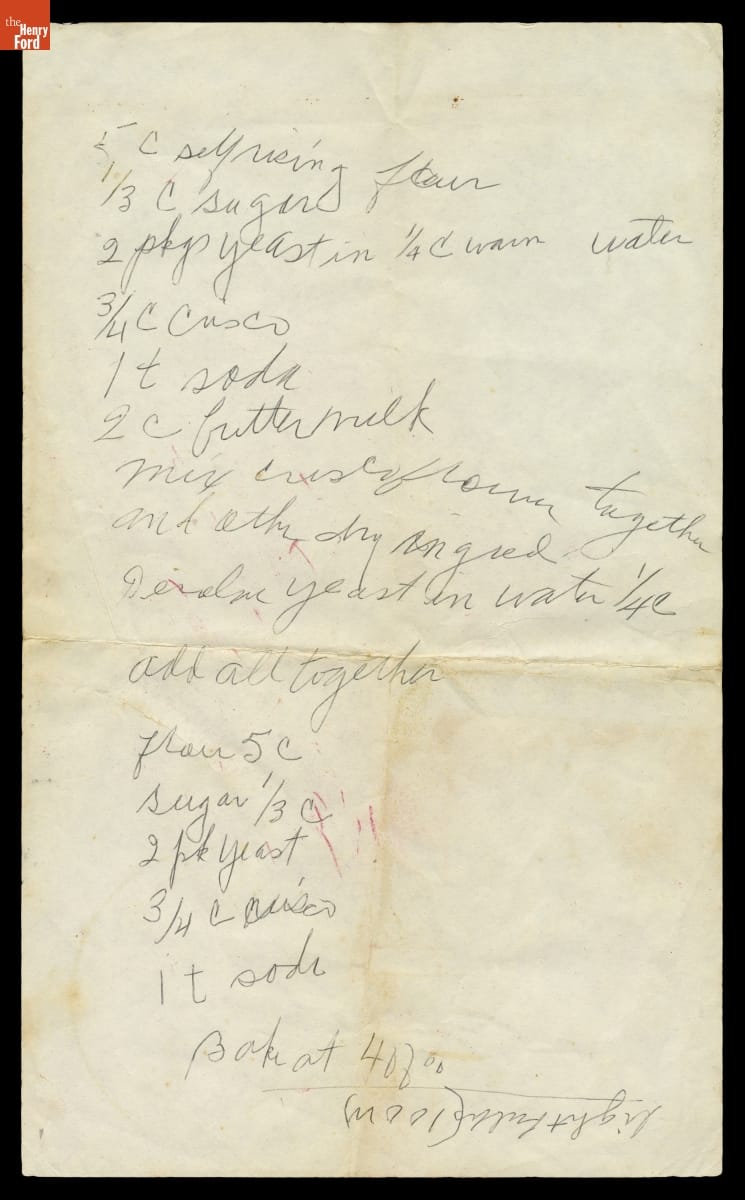 the
Henry
Ford
5 C selfrising flour
1/3 C sugar
2 pkgs yeast in 1/4 C warm water
3/4 C Crisco
1 t soda
2 C buttermilk
mix crisco flour together
and other dry ingred
Desolve yeast in water 1/4 C
add all together
flour 5 C
sugar 1/3 C
2 pk yeast
3/4 C crisco
1 t soda
Bake at 400
light